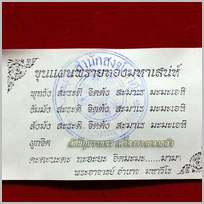 ขุนแผนพรายทองมหาเสน่ห์
พุทธัง สะระติ จิตตัง สะมาเร มะมะเอหิ
ธัมมัง สะระติ จิตตัง สะมาเร มะมะเอหิ
สังฆัง สะระติ จิตตัง สะมาเร มะมะเอหิ
ผูกจิต
คะตะนะตะ กะอะยะ จิตมะมะ.....มามา
พระอาจารย์ อำนาจ มหาวีโร